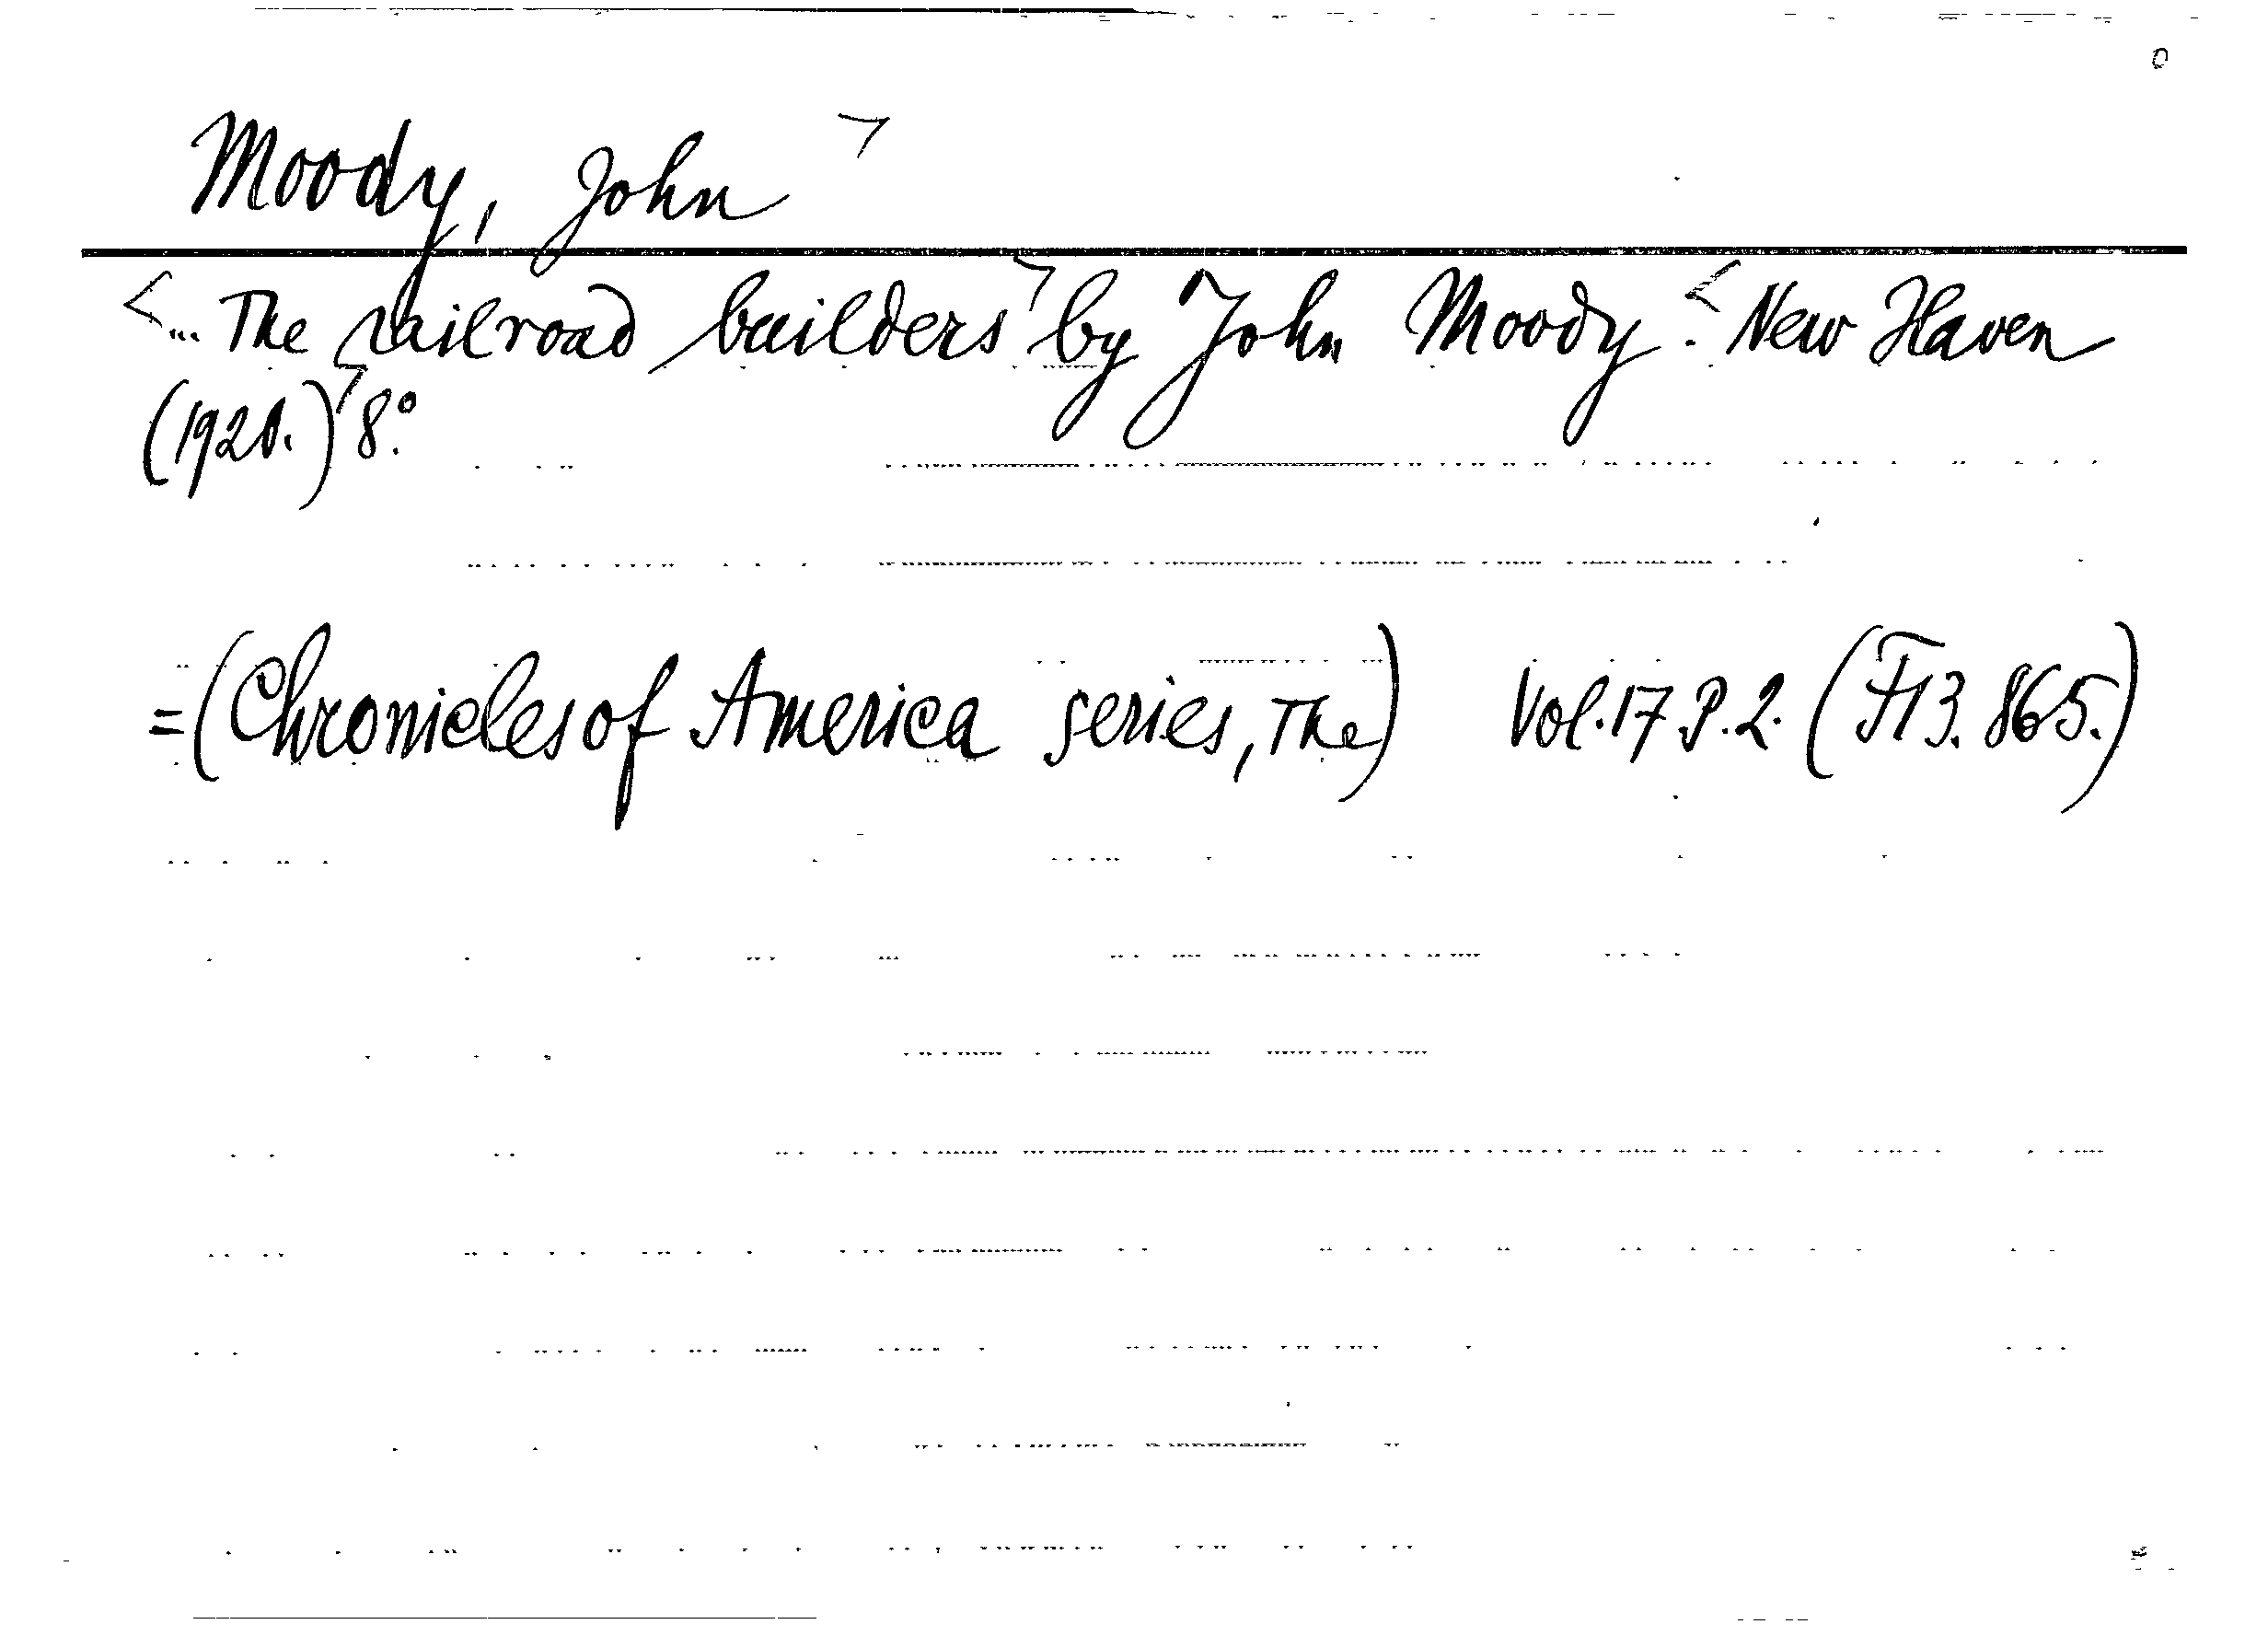 Moody, John
<... The railroad builders by John Moody. New Haven
(1920.) 8°.
=(Chronicles of America series, The) Vol. 17 P. 2. (F13. 865.)